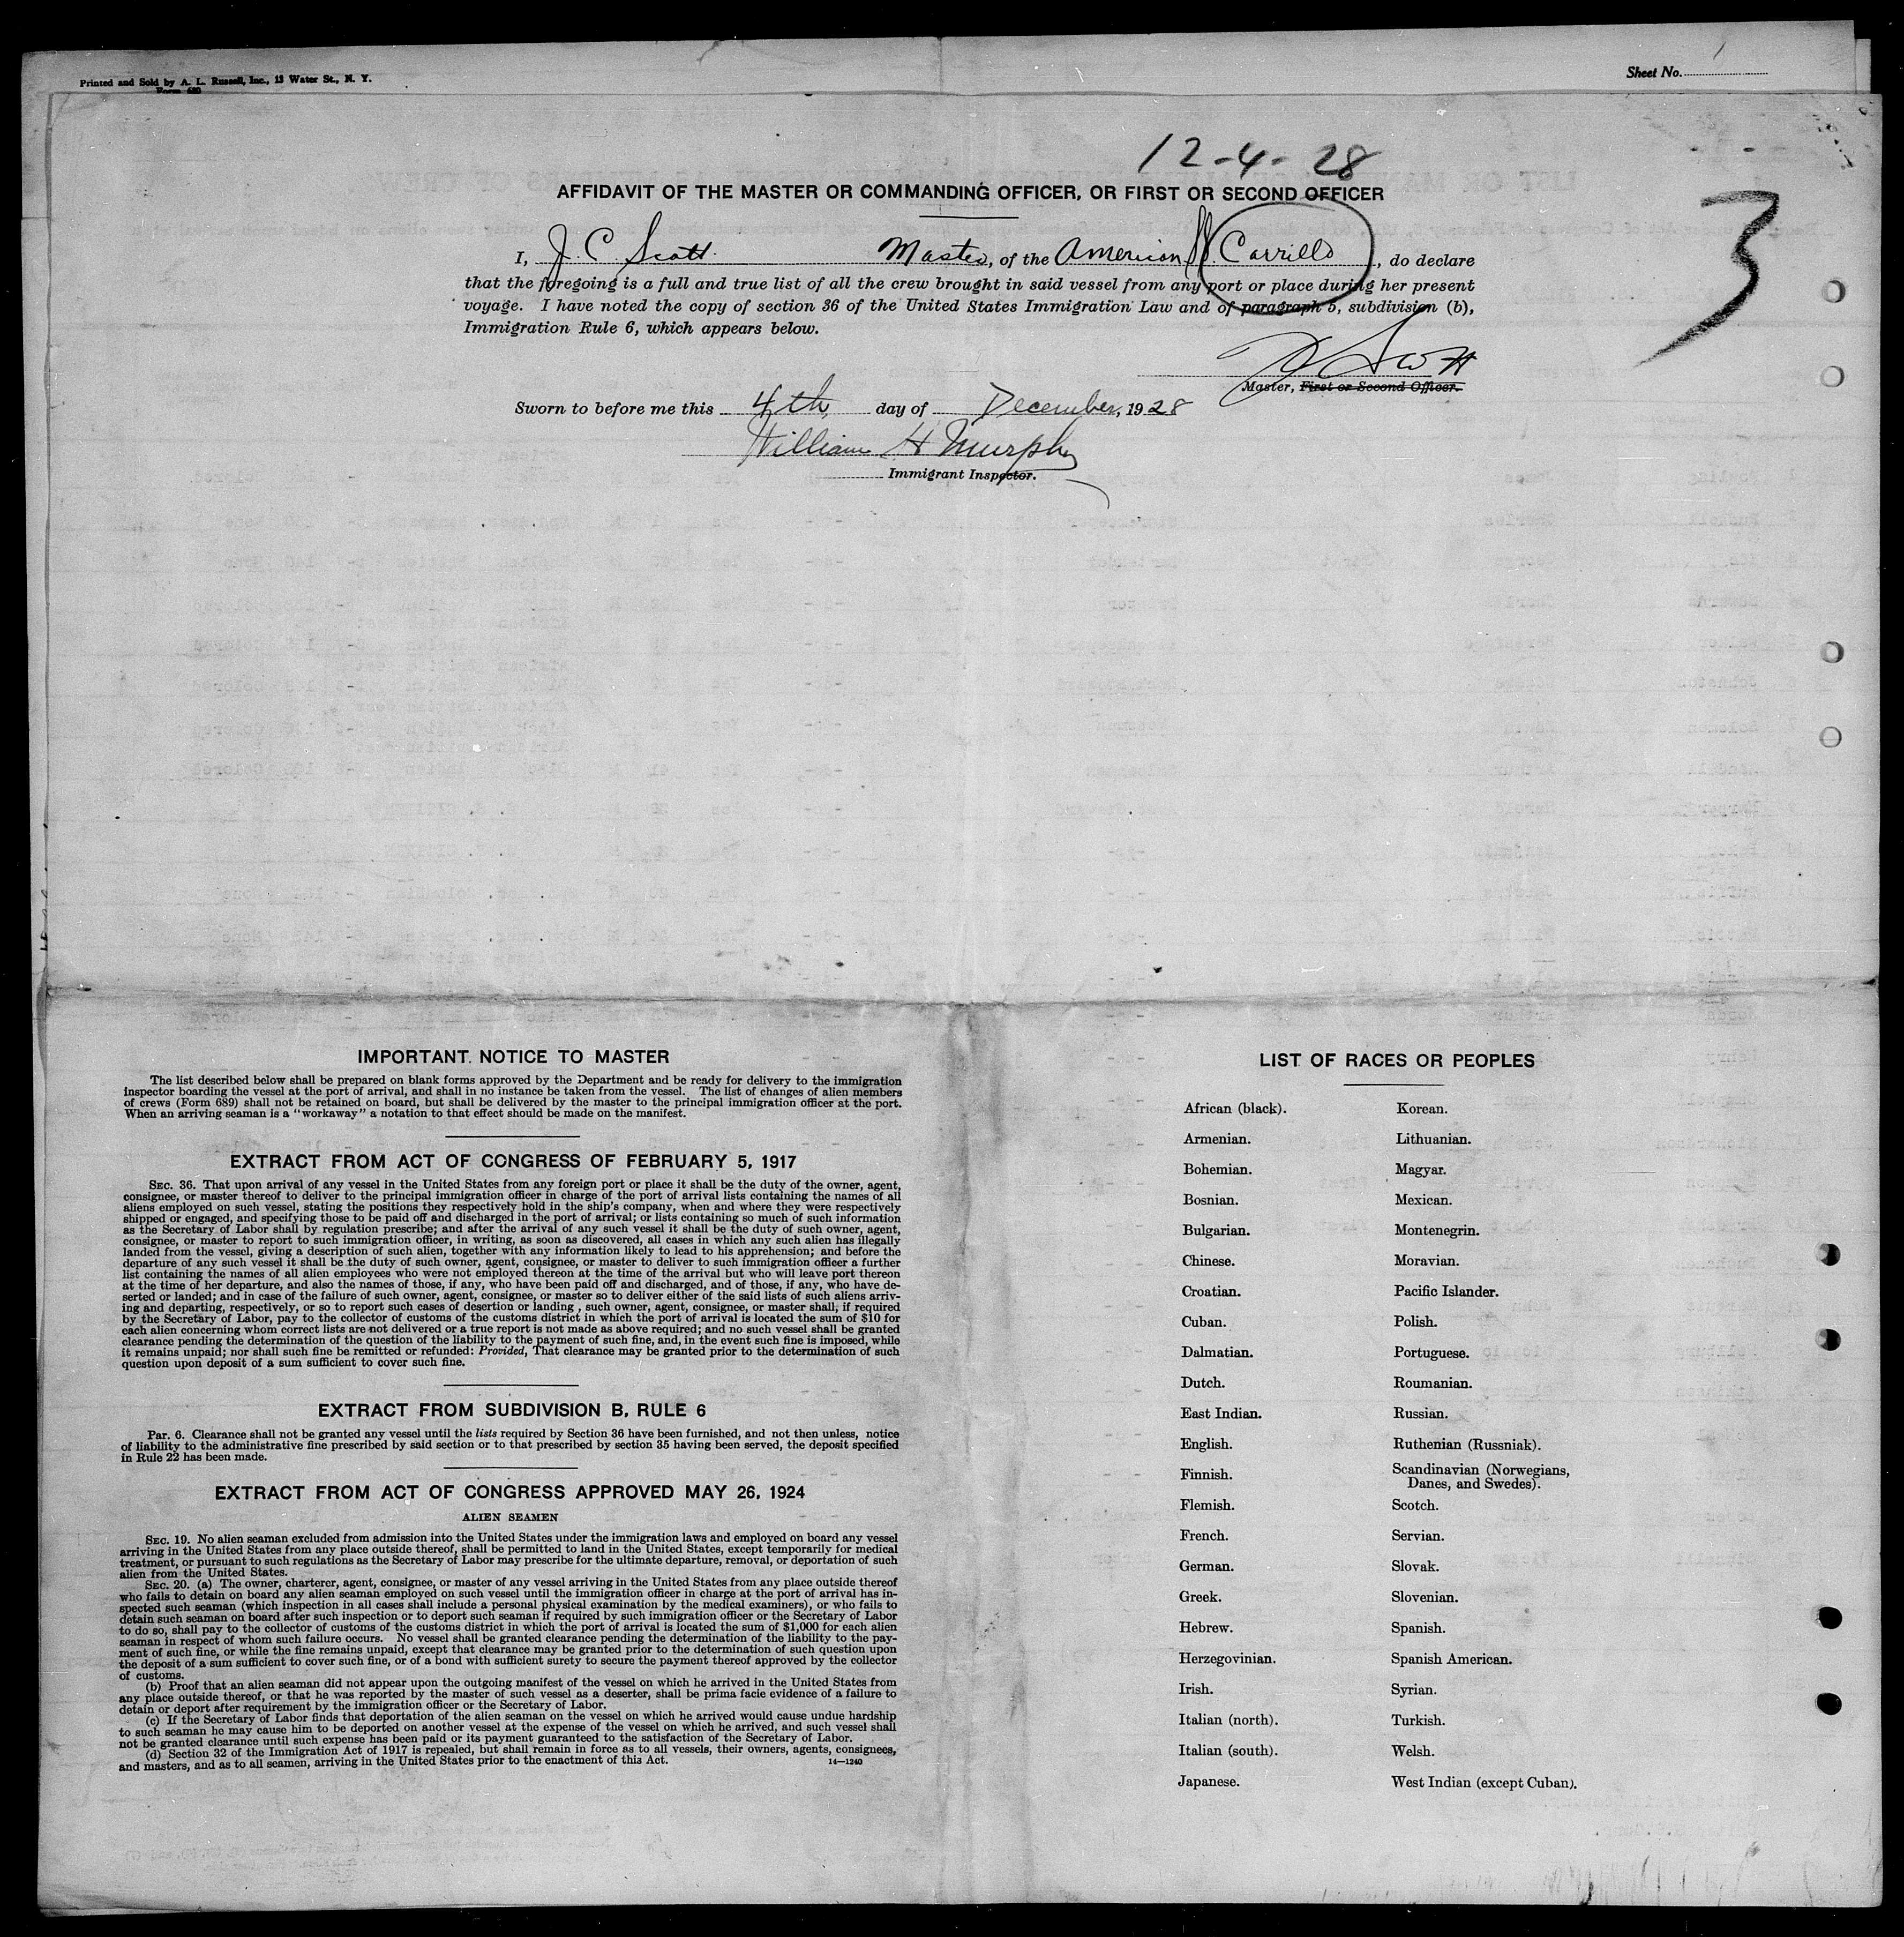 Printed and Sold by A. L. Russell, Inc., 13 Water St., N. Y.
Form 689
Sheet No. 1
12-4-28
3
AFFIDAVIT OF THE MASTER OR COMMANDING OFFICER, OR FIRST OR SECOND OFFICER
I, J. C. Scott. Master, of the American SS. Carrillo, do declare
that the foregoing is a full and true list of all the crew brought in said vessel from any port or place during her present
voyage. I have noted the copy of section 36 of the United States Immigration Law and of paragraph 5, subdivision (b),
Immigration Rule 6, which appears below.
J C Scott
Master, First or Second Officer.
Sworn to before me this 4th day of December, 1928
William H Murphy
Immigrant Inspector.
IMPORTANT NOTICE TO MASTER
The list described below shall be prepared on blank forms approved by the Department and be ready for delivery to the immigration
inspector boarding the vessel at the port of arrival, and shall in no instance be taken from the vessel. The list of changes of alien members
of crews (Form 689) shall not be retained on board, but shall be delivered by the master to the principal immigration officer at the port.
When an arriving seaman is a "workaway" a notation to that effect should be made on the manifest.
EXTRACT FROM ACT OF CONGRESS OF FEBRUARY 5, 1917
SEC. 36. That upon arrival of any vessel in the United States from any foreign port or place it shall be the duty of the owner, agent,
consignee, or master thereof to deliver to the principal immigration officer in charge of the port of arrival lists containing the names of all
aliens employed on such vessel, stating the positions they respectively hold in the ship's company, when and where they were respectively
shipped or engaged, and specifying those to be paid off and discharged in the port of arrival; or lists containing so much of such information
as the Secretary of Labor shall by regulation prescribe; and after the arrival of any such vessel it shall be the duty of such owner, agent,
consignee, or master to report to such immigration officer, in writing, as soon as discovered, all cases in which any such alien has illegally
landed from the vessel, giving a description of such alien, together with any information likely to lead to his apprehension; and before the
departure of any such vessel it shall be the duty of such owner, agent, consignee, or master to deliver to such immigration officer a further
list containing the names of all alien employees who were not employed thereon at the time of the arrival but who will leave port thereon
at the time of her departure, and also the names of those, if any, who have been paid off and discharged, and of those, if any, who have de-
serted or landed; and in case of the failure of such owner, agent, consignee, or master so to deliver either of the said lists of such aliens arriv-
ing and departing, respectively, or so to report such cases of desertion or landing , such owner, agent, consignee, or master shall, if required
by the Secretary of Labor, pay to the collector of customs of the customs district in which the port of arrival is located the sum of $10 for
each alien concerning whom correct lists are not delivered or a true report is not made as above required; and no such vessel shall be granted
clearance pending the determination of the question of the liability to the payment of such fine, and, in the event such fine is imposed, while
it remains unpaid; nor shall such fine be remitted or refunded: Provided, That clearance may be granted prior to the determination of such
question upon deposit of a sum sufficient to cover such fine.
EXTRACT FROM SUBDIVISION B, RULE 6
Par. 6. Clearance shall not be granted any vessel until the lists required by Section 36 have been furnished, and not then unless, notice
of liability to the administrative fine prescribed by said section or to that prescribed by section 35 having been served, the deposit specified
in Rule 22 has been made.
EXTRACT FROM ACT OF CONGRESS APPROVED MAY 26, 1924
ALIEN SEAMEN
SEC. 19. No alien seaman excluded from admission into the United States under the immigration laws and employed on board any vessel
arriving in the United States from any place outside thereof, shall be permitted to land in the United States, except temporarily for medical
treatment, or pursuant to such regulations as the Secretary of Labor may prescribe for the ultimate departure, removal, or deportation of such
alien from the United States.
SEC. 20. (a) The owner, charterer, agent, consignee, or master of any vessel arriving in the United States from any place outside thereof
who fails to detain on board any alien seaman employed on such vessel until the immigration officer in charge at the port of arrival has in-
spected such seaman (which inspection in all cases shall include a personal physical examination by the medical examiners), or who fails to
detain such seaman on board after such inspection or to deport such seaman if required by such immigration officer or the Secretary of Labor
to do so, shall pay to the collector of customs of the customs district in which the port of arrival is located the sum of $1,000 for each alien
seaman in respect of whom such failure occurs. No vessel shall be granted clearance pending the determination of the liability to the pay-
ment of such fine, or while the fine remains unpaid, except that clearance may be granted prior to the determination of such question upon
the deposit of a sum sufficient to cover such fine, or of a bond with sufficient surety to secure the payment thereof approved by the collector
of customs.
(b) Proof that an alien seaman did not appear upon the outgoing manifest of the vessel on which he arrived in the United States from
any place outside thereof, or that he was reported by the master of such vessel as a deserter, shall be prima facie evidence of a failure to
detain or deport after requirement by the immigration officer or the Secretary of Labor.
(c) If the Secretary of Labor finds that deportation of the alien seaman on the vessel on which he arrived would cause undue hardship
to such seaman he may cause him to be deported on another vessel at the expense of the vessel on which he arrived, and such vessel shall
not be granted clearance until such expense has been paid or its payment guaranteed to the satisfaction of the Secretary of Labor.
(d) Section 32 of the Immigration Act of 1917 is repealed, but shall remain in force as to all vessels, their owners, agents, consignees,
and masters, and as to all seamen, arriving in the United States prior to the enactment of this Act. 14—1240
LIST OF RACES OR PEOPLES
African (black).
Armenian.
Bohemian.
Bosnian.
Bulgarian.
Chinese.
Croatian.
Cuban.
Dalmatian.
Dutch.
East Indian.
English.
Finnish.
Flemish.
French.
German.
Greek.
Hebrew.
Herzegovinian.
Irish.
Italian (north).
Italian (south).
Japanese.
Korean.
Lithuanian.
Magyar.
Mexican.
Montenegrin.
Moravian.
Pacific Islander.
Polish.
Portuguese.
Roumanian.
Russian.
Ruthenian (Russniak).
Scandinavian (Norwegians,
Danes, and Swedes).
Scotch.
Servian.
Slovak.
Slovenian.
Spanish.
Spanish American.
Syrian.
Turkish.
Welsh.
West Indian (except Cuban).